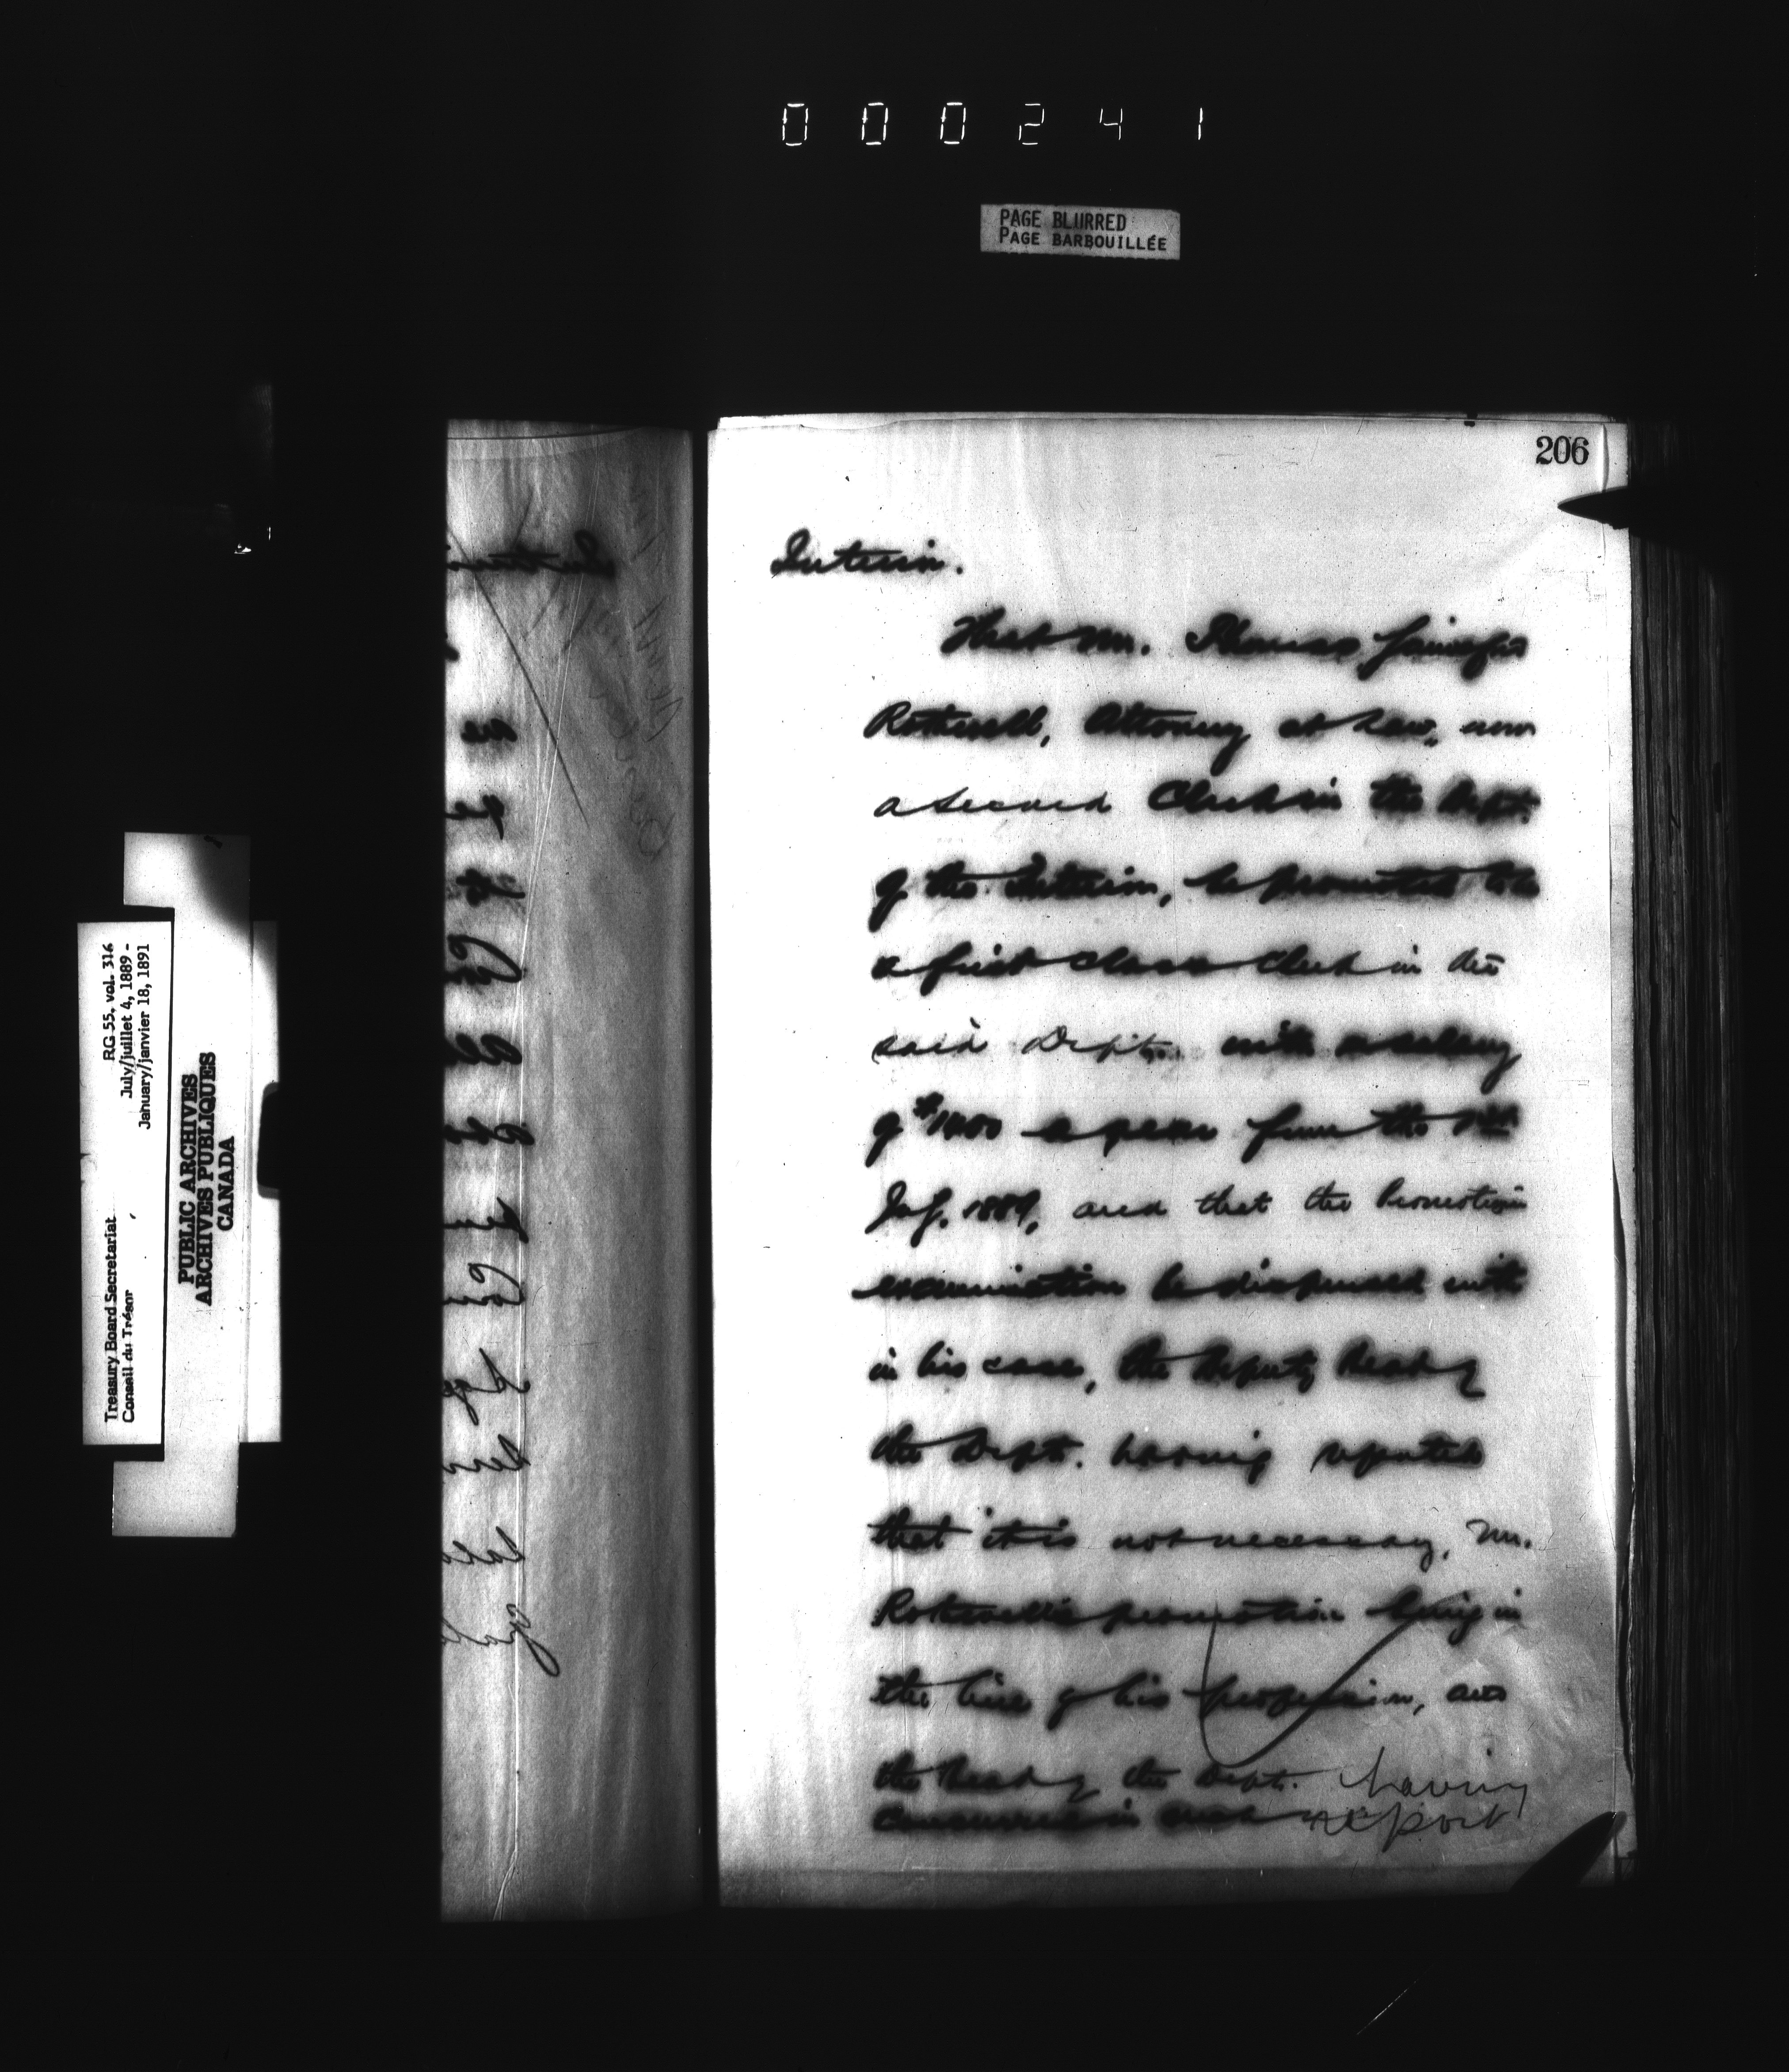 000241
PAGE BLURRED
PAGE BARBOUILLÉE
206
Interior.
That Mr. Thomas
Rothwell, Attorney at Law, now
a second Clerk in the Dept.
of the Interior, be promoted to be
a first class Clerk in the
said Dept. with a salary
of $1400 a year from the 1st
July. 1889, and that the Promotion
examination be dispensed with
in his case, the Deputy Head of
the Dept. having reported
that it is not necessary, Mr.
Rothwell's promotion being in
the line of his profession, and
the Head of the Dept. having
concurred in such report
RG 55, vol. 316
July/juillet 4, 1889 -
January/janvier 18, 1891
Treasury Board Secretariat
Conseil du Trésor
PUBLIC ARCHIVES
ARCHIVES PUBLIQUES
CANADA